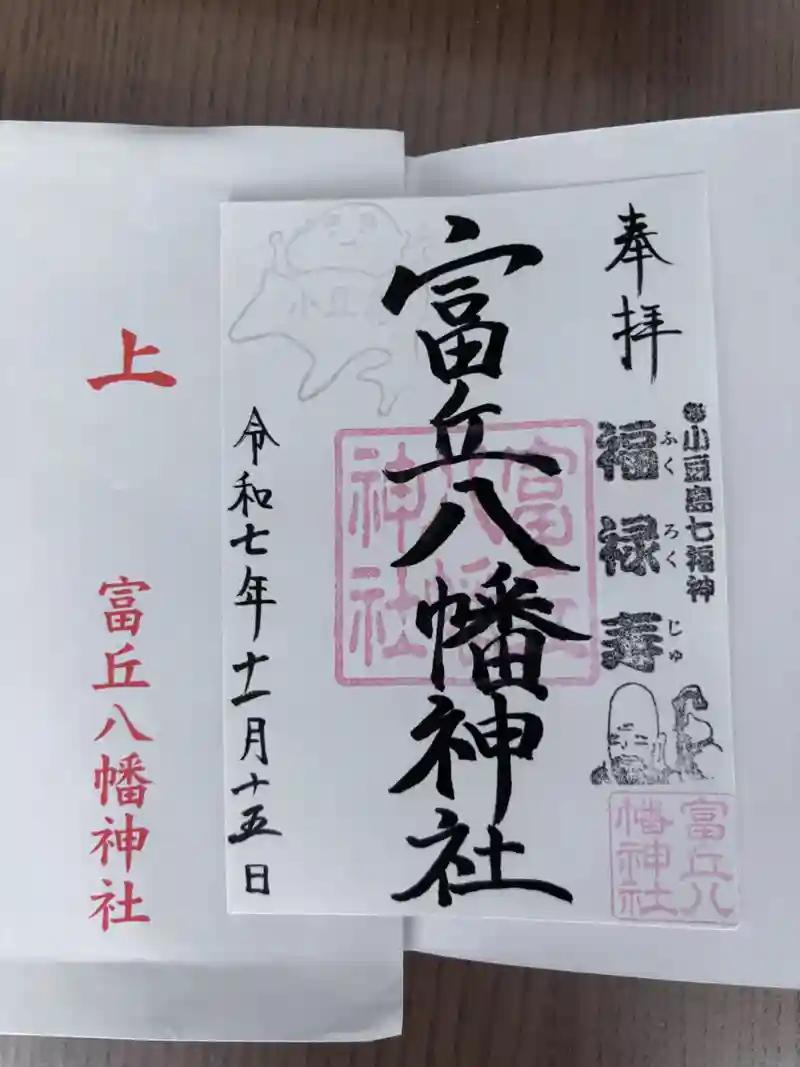 奉拝
小豆島七福神
福禄寿
ふくろくじゅ
富丘八幡神社
富丘八幡神社
富丘八幡神社
小豆
令和七年十一月十五日
上
富丘八幡神社